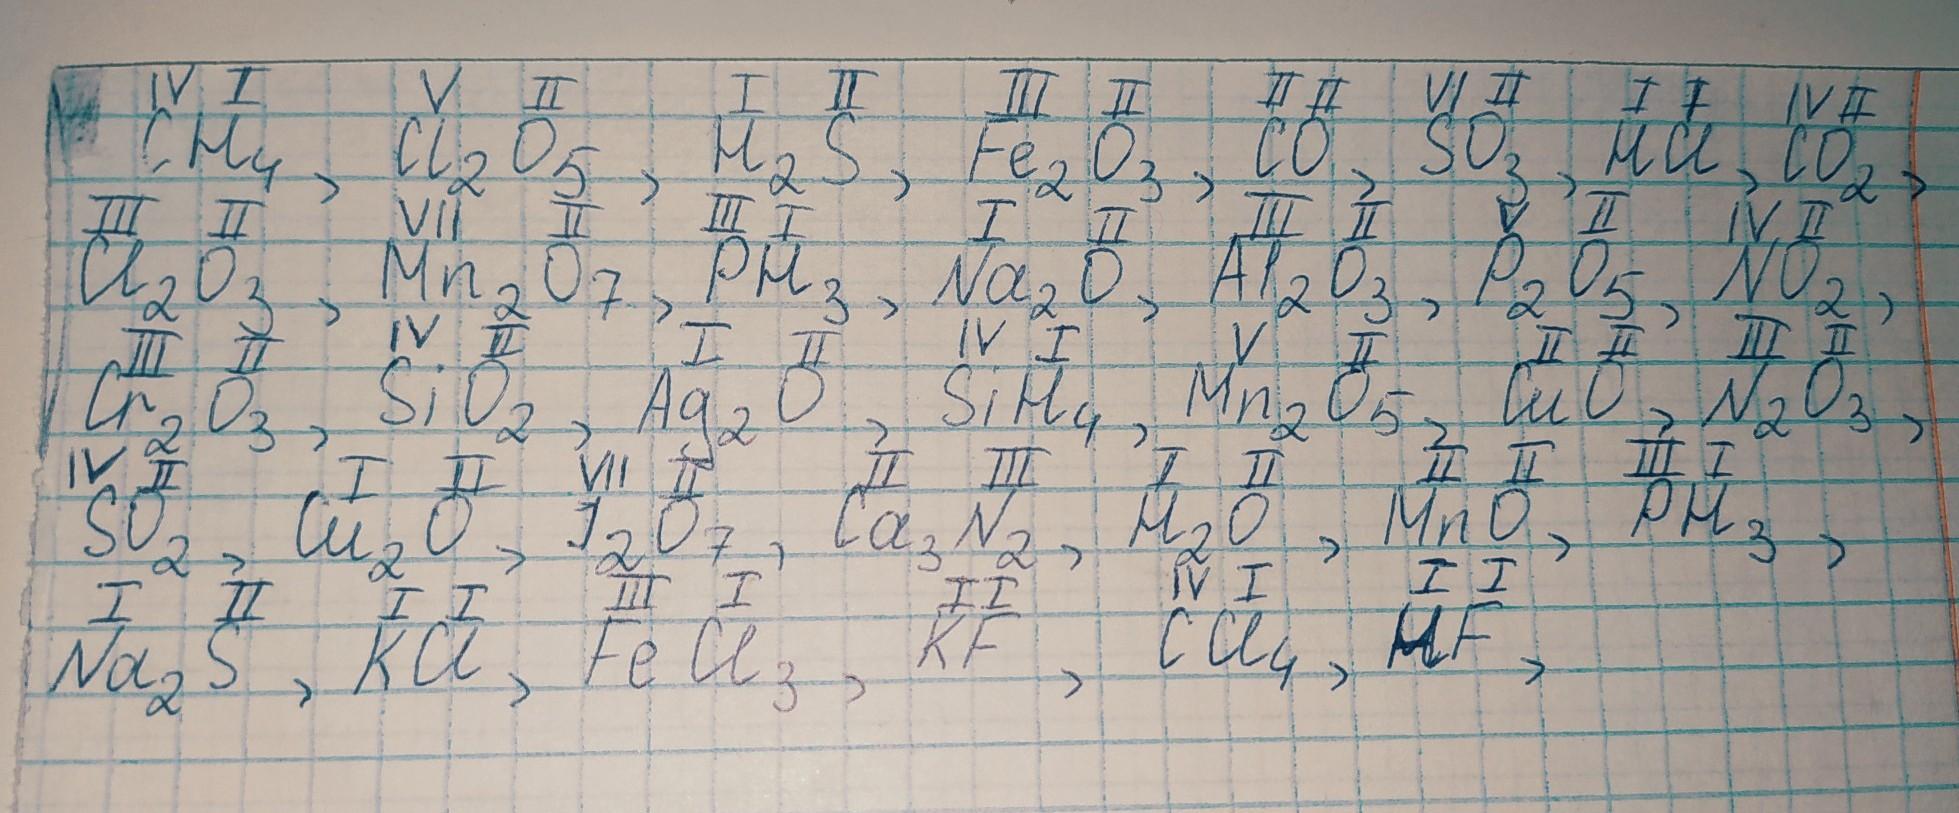 IV I V II I II III II II II VI II I I IV II
CH₄, Cl₂O₅, H₂S, Fe₂O₃, CO, SO₃, HCl, CO₂,
III II VII II III I I II III II V II IV II
Cl₂O₃, Mn₂O₇, PH₃, Na₂O, Al₂O₃, P₂O₅, NO₂,
III II IV II I II IV I V II II II III II
Cr₂O₃, SiO₂, Ag₂O, SiH₄, Mn₂O₅, CuO, N₂O₃,
IV II I II VII II II III I II II II III I
SO₂, Cu₂O, J₂O₇, Ca₃N₂, H₂O, MnO, PH₃,
I II I I III I I I IV I I I
Na₂S, KCl, FeCl₃, KF, CCl₄, HF,